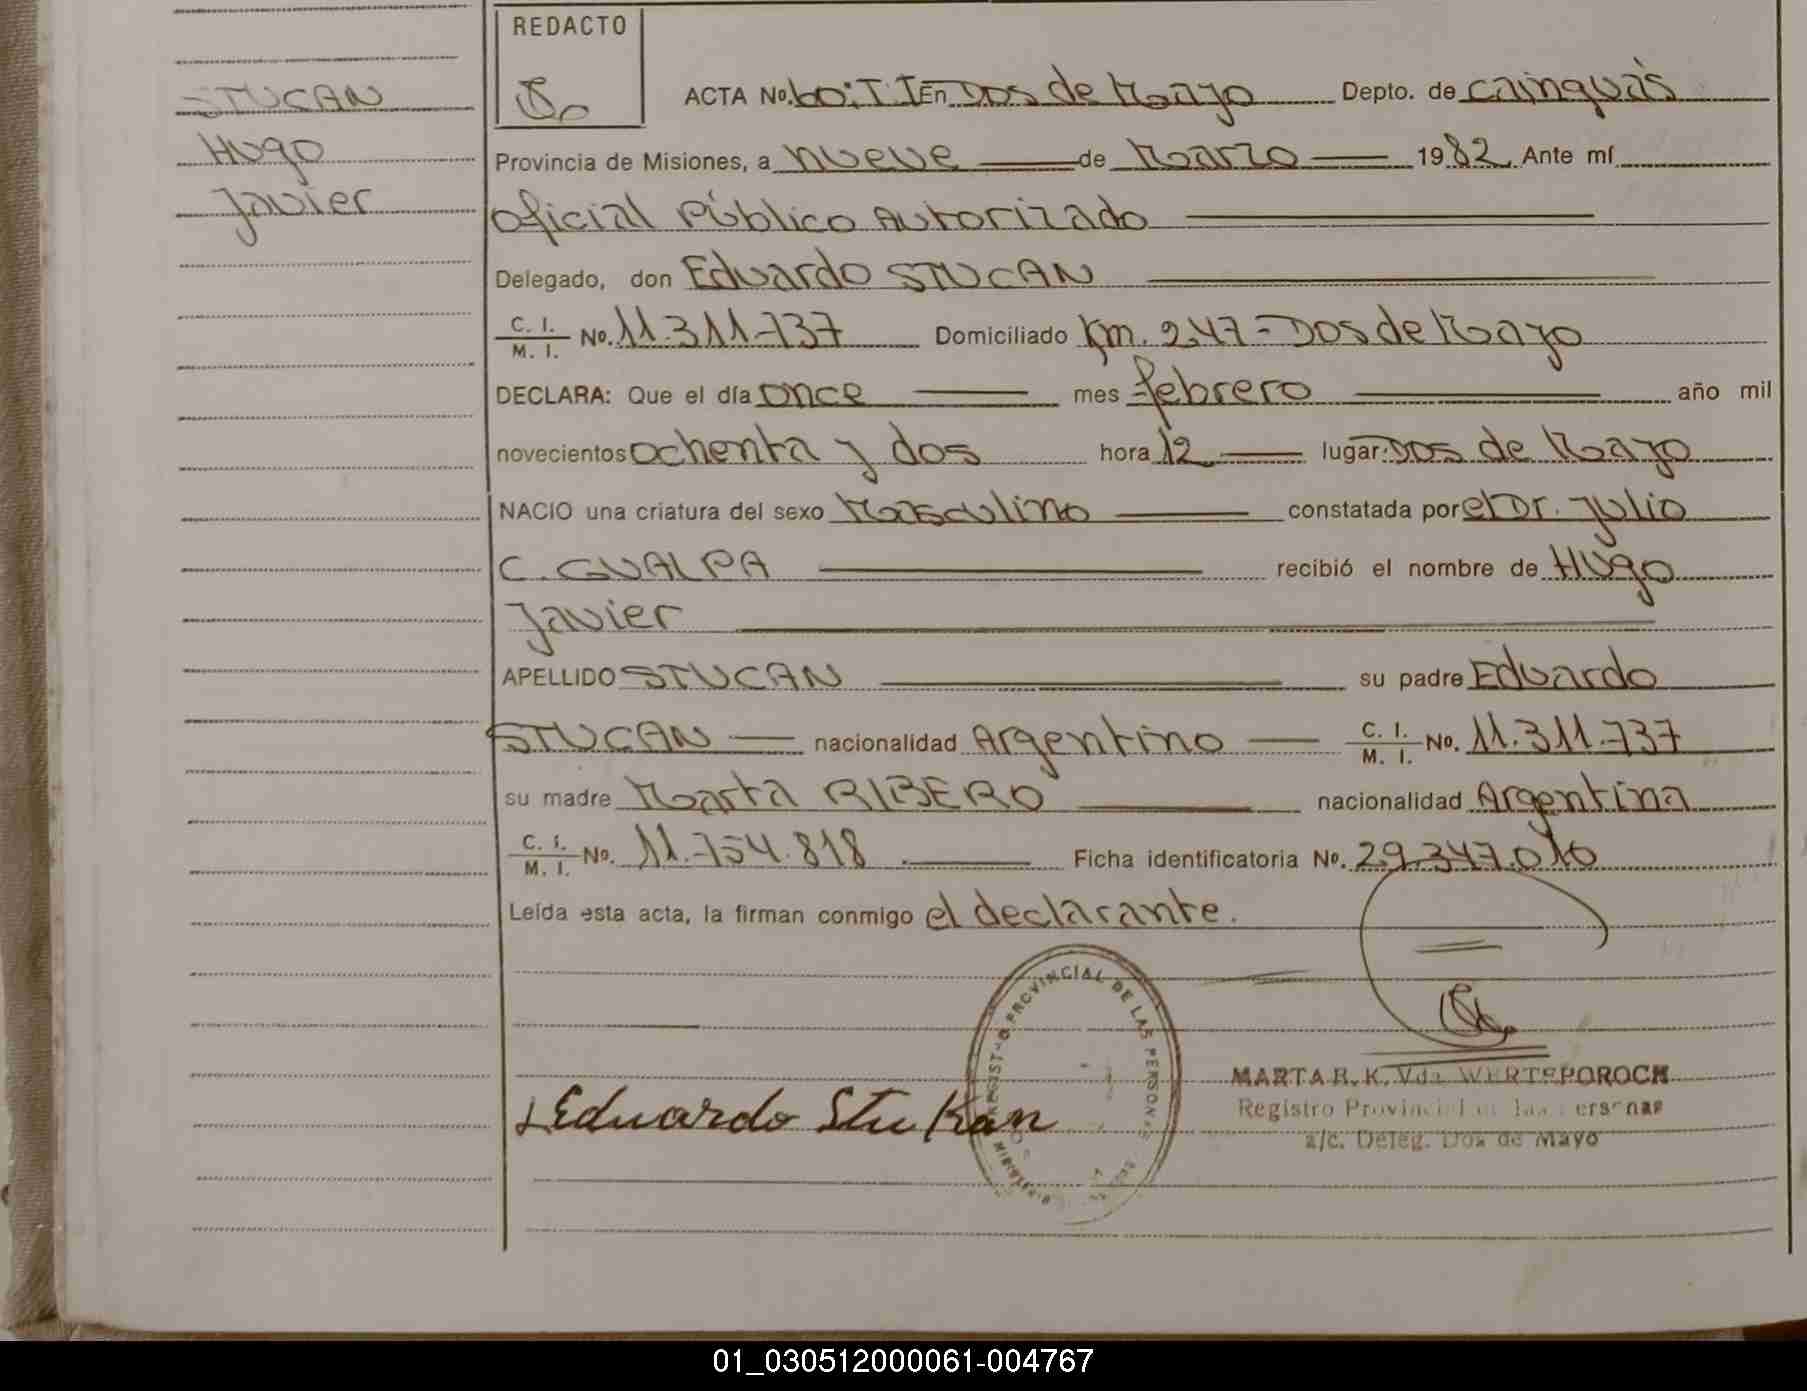 REDACTO
STUCAN
Hugo
Javier
ACTA No. 60:T.I En Dos de Mayo Depto. de Cainguás
Provincia de Misiones, a nueve de Marzo 1982 Ante mí
Oficial Público Autorizado
Delegado, don Eduardo STUCAN
C. I. M. I. No. 11.311.737 Domiciliado Km. 247 - Dos de Mayo
DECLARA: Que el día once mes febrero año mil
novecientos ochenta y dos hora 12 lugar: Dos de Mayo
NACIO una criatura del sexo Masculino constatada por el Dr. Julio
C. GUALPA recibió el nombre de Hugo
Javier
APELLIDO STUCAN su padre Eduardo
STUCAN nacionalidad Argentino C. I. M. I. No. 11.311.737
su madre Marta RIBERO nacionalidad Argentina
C. I. M. I. No. 11.754.818 Ficha identificatoria No. 29.347.010
Leída esta acta, la firman conmigo el declarante.
PROVINCIAL DE LAS PERSONAS
Eduardo Stukan
MARTA R. K. Vda. WERTSPOROCH
Registro Provincial de las Personas
a/c. Deleg. Dos de Mayo
01_030512000061-004767